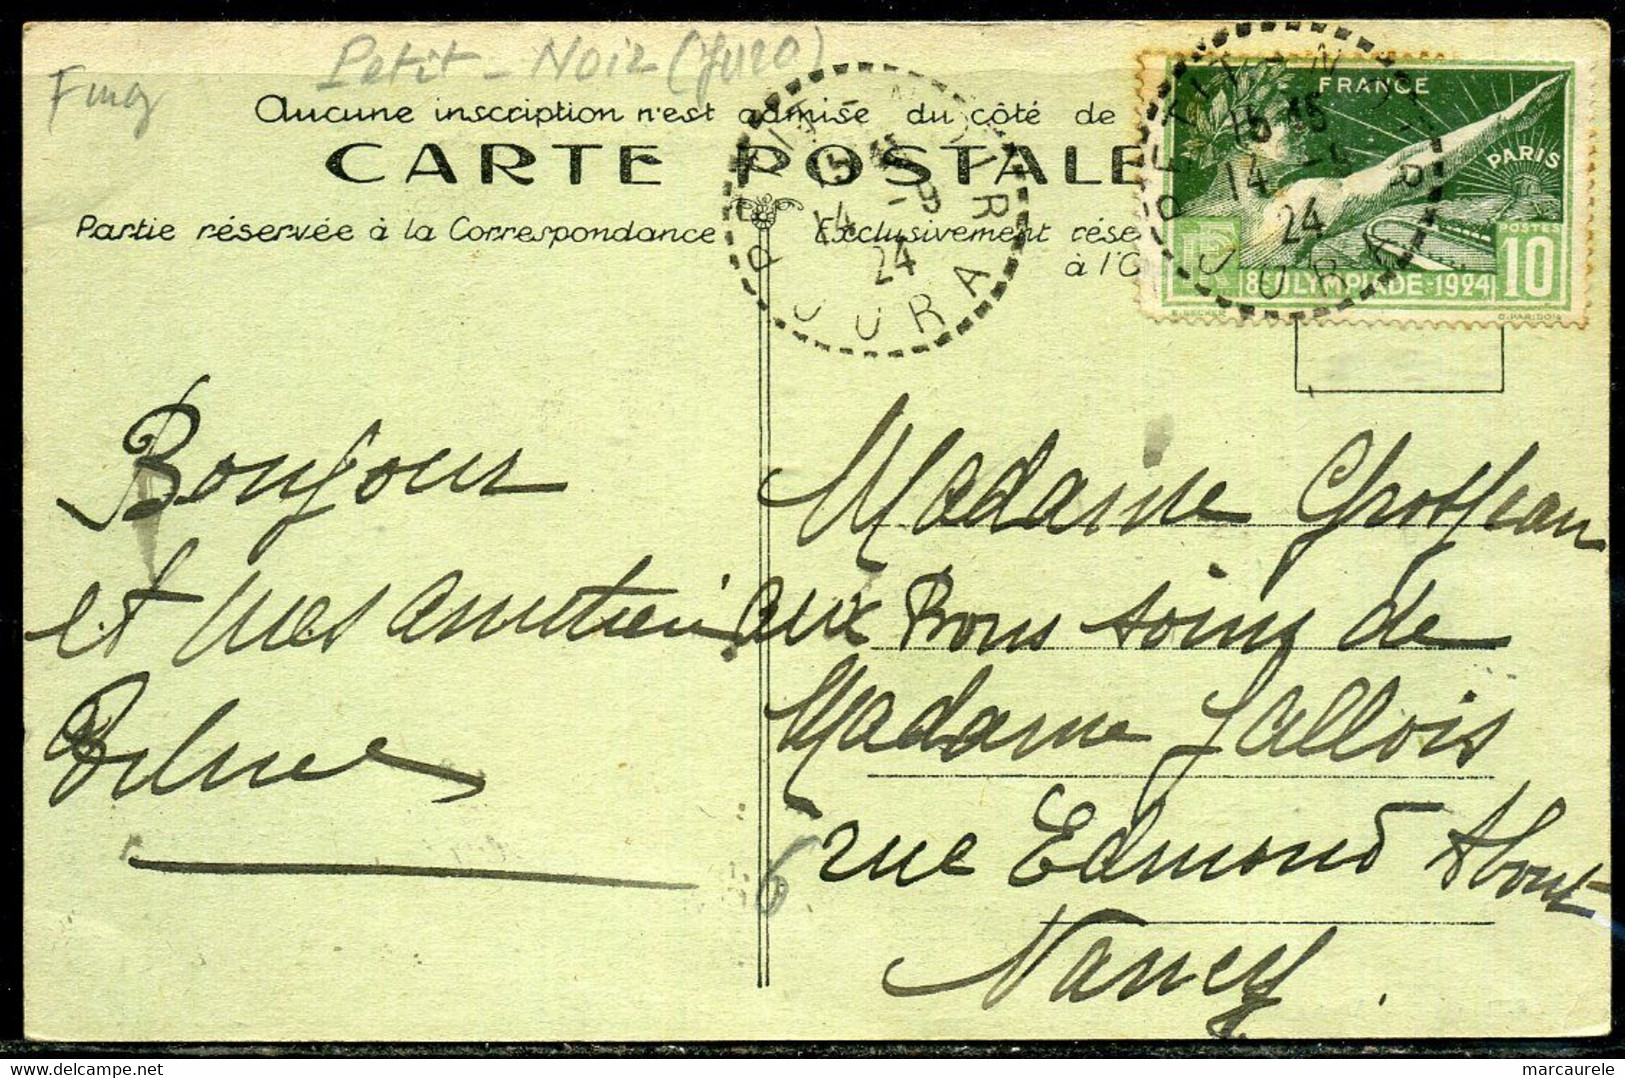 Petit-Noir (Jura)
Aucune inscription n'est admise du côté de
CARTE POSTALE
Partie réservée à la Correspondance
Exclusivement rése
à l'
PETIT-NOIR
14
24
JURA
FRANCE
PARIS
RF
POSTES
8E OLYMPIADE-1924
10
PETIT-NOIR
15 45
14
24
JURA
Bonjour
et mes amitiés
Madame Grosjean
aux Bons soins de
Madame Jallois
rue Edmond About
Nancy.
6
marcaurele